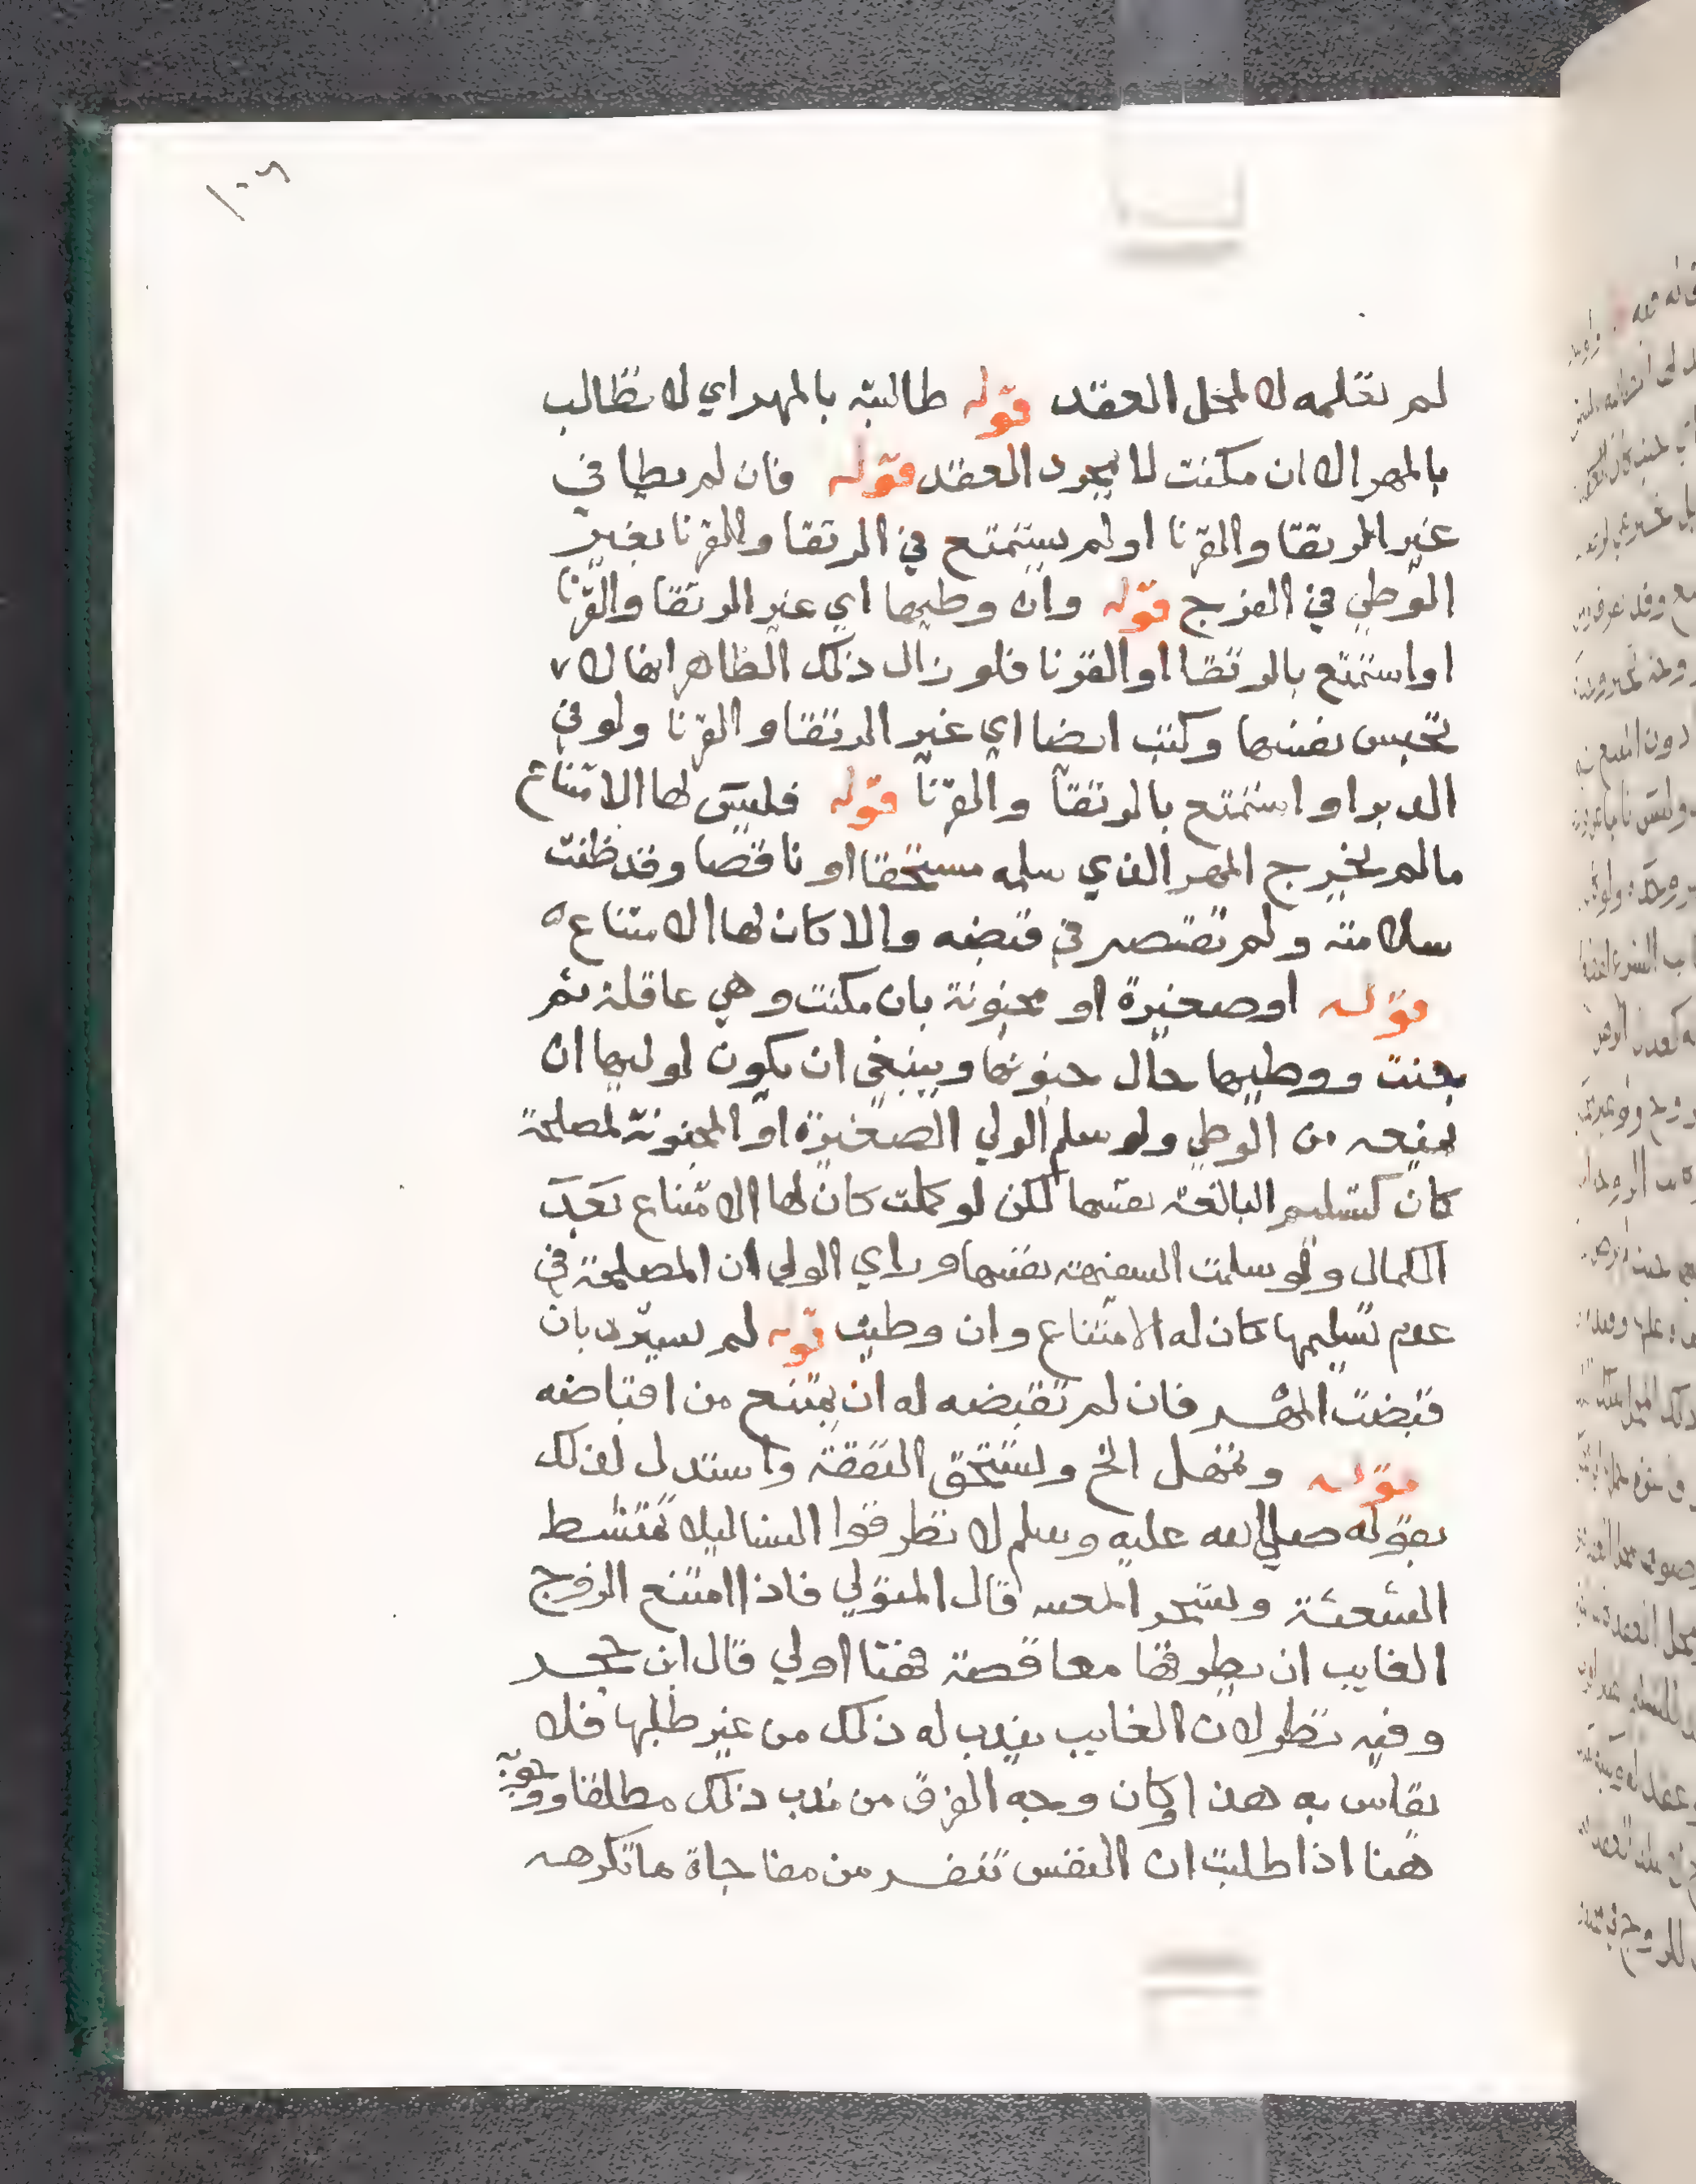 ١٠٦
لم تعلمه لا لمحل العقد قوله طالبته بالمهر اي لا تطالب
بالمهر الا ان مكنت لا بمجرد العقد قوله فان لم يطا في
غير الرتقا والقرنا او لم يستمتع في الرتقا والقرنا بغير
الوطي في الفرج قوله وان وطيها اي غير الرتقا والقرنا
او استمتع بالرتقا او القرنا فلو زال ذلك الظاهر انها لا
تحبس نفسها وكتب ايضا اي غير الرتقا والقرنا ولو في
الدبر او استمتع بالرتقا والقرنا قوله فليس لها الامتناع
ما لم يخرج المهر الذي سلمه مستحقا او ناقصا وقد ظنت
سلامته ولم تقتصر في قبضه والا كان لها الامتناع ه
قوله او صغيرة او مجنونة بان مكنت وهي عاقلة ثم
جنت ووطيها حال جنونها وينبغي ان يكون لوليها ان
يمنعه من الوطي ولو سلم الولي الصغيرة او المجنونة لمصلحة
كان كتسليم البالغة نفسها لكن لو كملت كان لها الامتناع بعد
الكمال ولو سلمت السفيهة نفسها وراي الولي ان المصلحة في
عدم تسليمها كان له الامتناع وان وطيت قوله لم يسترد بان
قبضت المهر فان لم تقبضه له ان يمتنع من اقباضه
قوله وتمهل الخ وتستحق النفقة واستدل لذلك
بقوله صلى الله عليه وسلم لا تطرقوا النسا ليلا تمتشط
الشعثة وتستحد المغيبة قال المتولي فاذا امتنع الزوج
الغايب ان يطرقها معافصة فهنا اولي قال ابن حجر
وفيه نظر لان الغايب يندب له ذلك من غير طلبها فلا
يقاس به هذا وكان وجه الفرق من ندب ذلك مطلقا ووجوبه
هنا اذا طلبت ان النفس تنفر من مفاجاة ما تكرهه